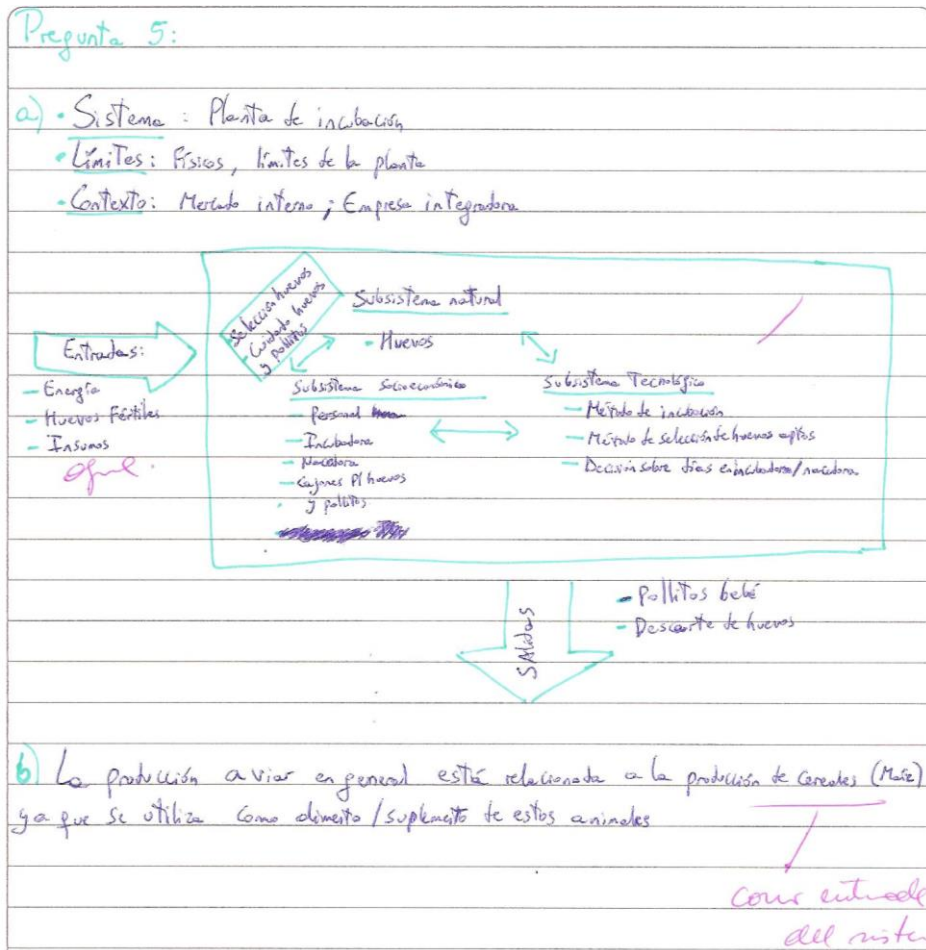 Pregunta 5:
a) • Sistema : Planta de incubación
• Límites: Físicos, límites de la planta
• Contexto: Mercado interno ; Empresa integradora
- Selección huevos
- Cuidado huevos
y pollitos
Subsistema natural
- Huevos
Entradas:
- Energía
- Huevos Fértiles
- Insumos
Subsistema Socioeconómico
- Personal
- Incubadora
- Nacedora
- Cajones P/ huevos
y pollitos
Subsistema Tecnológico
- Método de incubación
- Método de selección de huevos aptos
- Decisión sobre días en incubadora/nacedora
SAlidas
- Pollitos bebé
- Descarte de huevos
b) La producción aviar en general está relacionada a la producción de cereales (Maíz)
ya que se utiliza como alimento/suplemento de estos animales
como entrada
del